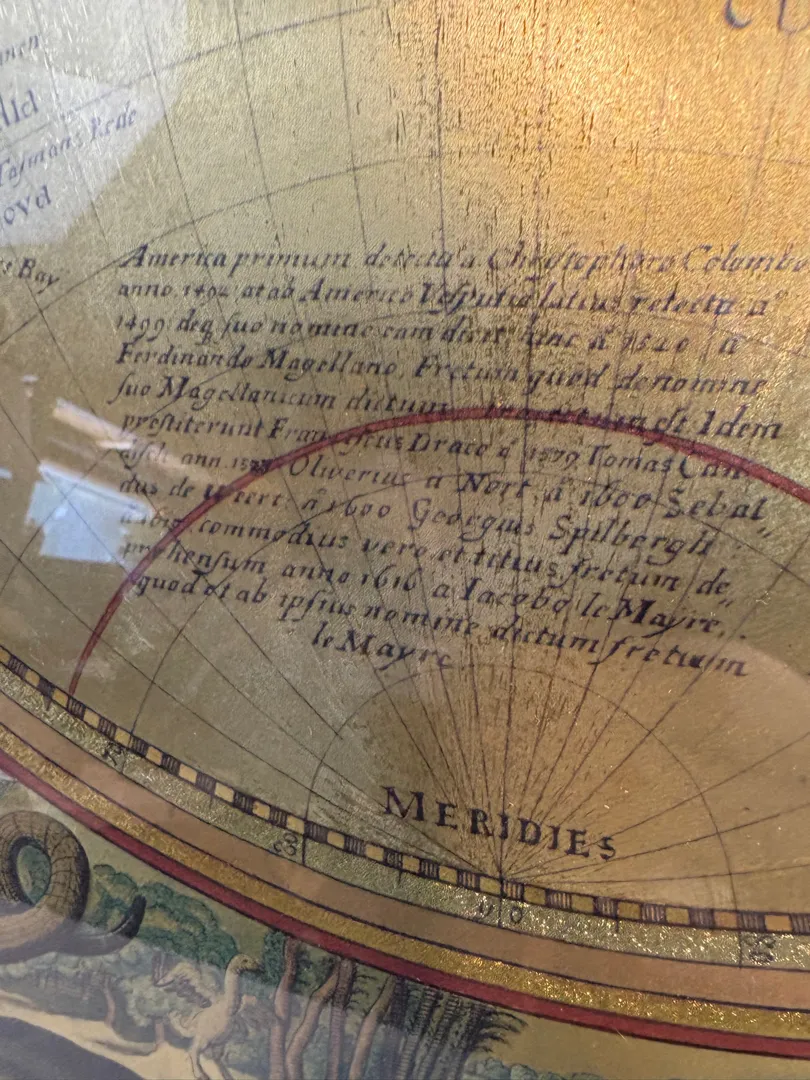 nnen
Tasmans Rede
Bay
America primum detecta a Christophoro Colombo
anno 1492 at ab Americo Vesputio latius retecta aº
1499 deq suo nomine eam dicit, hinc aº 1520 a
Ferdinando Magellano, Fretum quod denomine
suo Magellanicum dictum est Idem
prestiterunt Franciscus Draco aº 1579 Tomas Can-
disch ann. Oliverius a Nort aº 1600 Sebal„
dus de Weert aº 1600 Georgius Spilbergh
commodius vero et titius fretum de„
prehensum anno 1616 a Iacobo le Mayre,
quod et ab ipsius nomine dictum fretum
le Mayre
MERIDIES
80
90
80